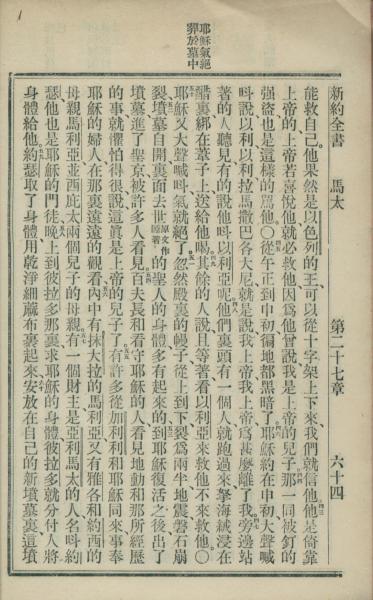 1
耶穌氣絕
葬於墓中
新約全書　馬太　第二十七章　六十四
能救自己他果然是以色列的王可以從十字架上下來我們就信他他是倚靠
上帝的上帝若喜悅他就必救他因爲他曾說我是上帝的兒子那一同被釘的
強盜也是這樣的罵他○從午正到申初徧地都黑暗了耶穌約在申初大聲喊
呌說以利以利拉馬撒巴各大尼就是說我上帝我上帝爲甚麼離了我旁邊站
著的人聽見有的說他呌以利亞呢他們裏頭有一個人就跑過來拏海絨浸在
醋裏綁在葦子上送給他喝其餘的人說且等著看以利亞來救他不來救他○
耶穌又大聲喊呌氣就絕了忽然殿裏的幔子從上到下裂爲兩半地震磐石崩
裂墳墓自開裏面去世原文作睡著的聖人的身體多有起來的到耶穌復活之後出了
墳墓進了聖京被許多人看見百夫長和看守耶穌的人看見地動和那所經歷
的事就懼怕得很說這眞是上帝的兒子了有許多從加利利和耶穌同來事奉
耶穌的婦人在那裏遠遠的觀看內中有抹大拉的馬利亞又有雅各和約西的
母親馬利亞並西庇太兩個兒子的母親有一個財主是亞利馬太的人名呌約
瑟他也是耶穌的門徒晚上到彼拉多那裏求耶穌的身體彼拉多就分付人將
身體給他約瑟取了身體用乾淨細蔴布裹起來安放在自己的新墳墓裏這墳